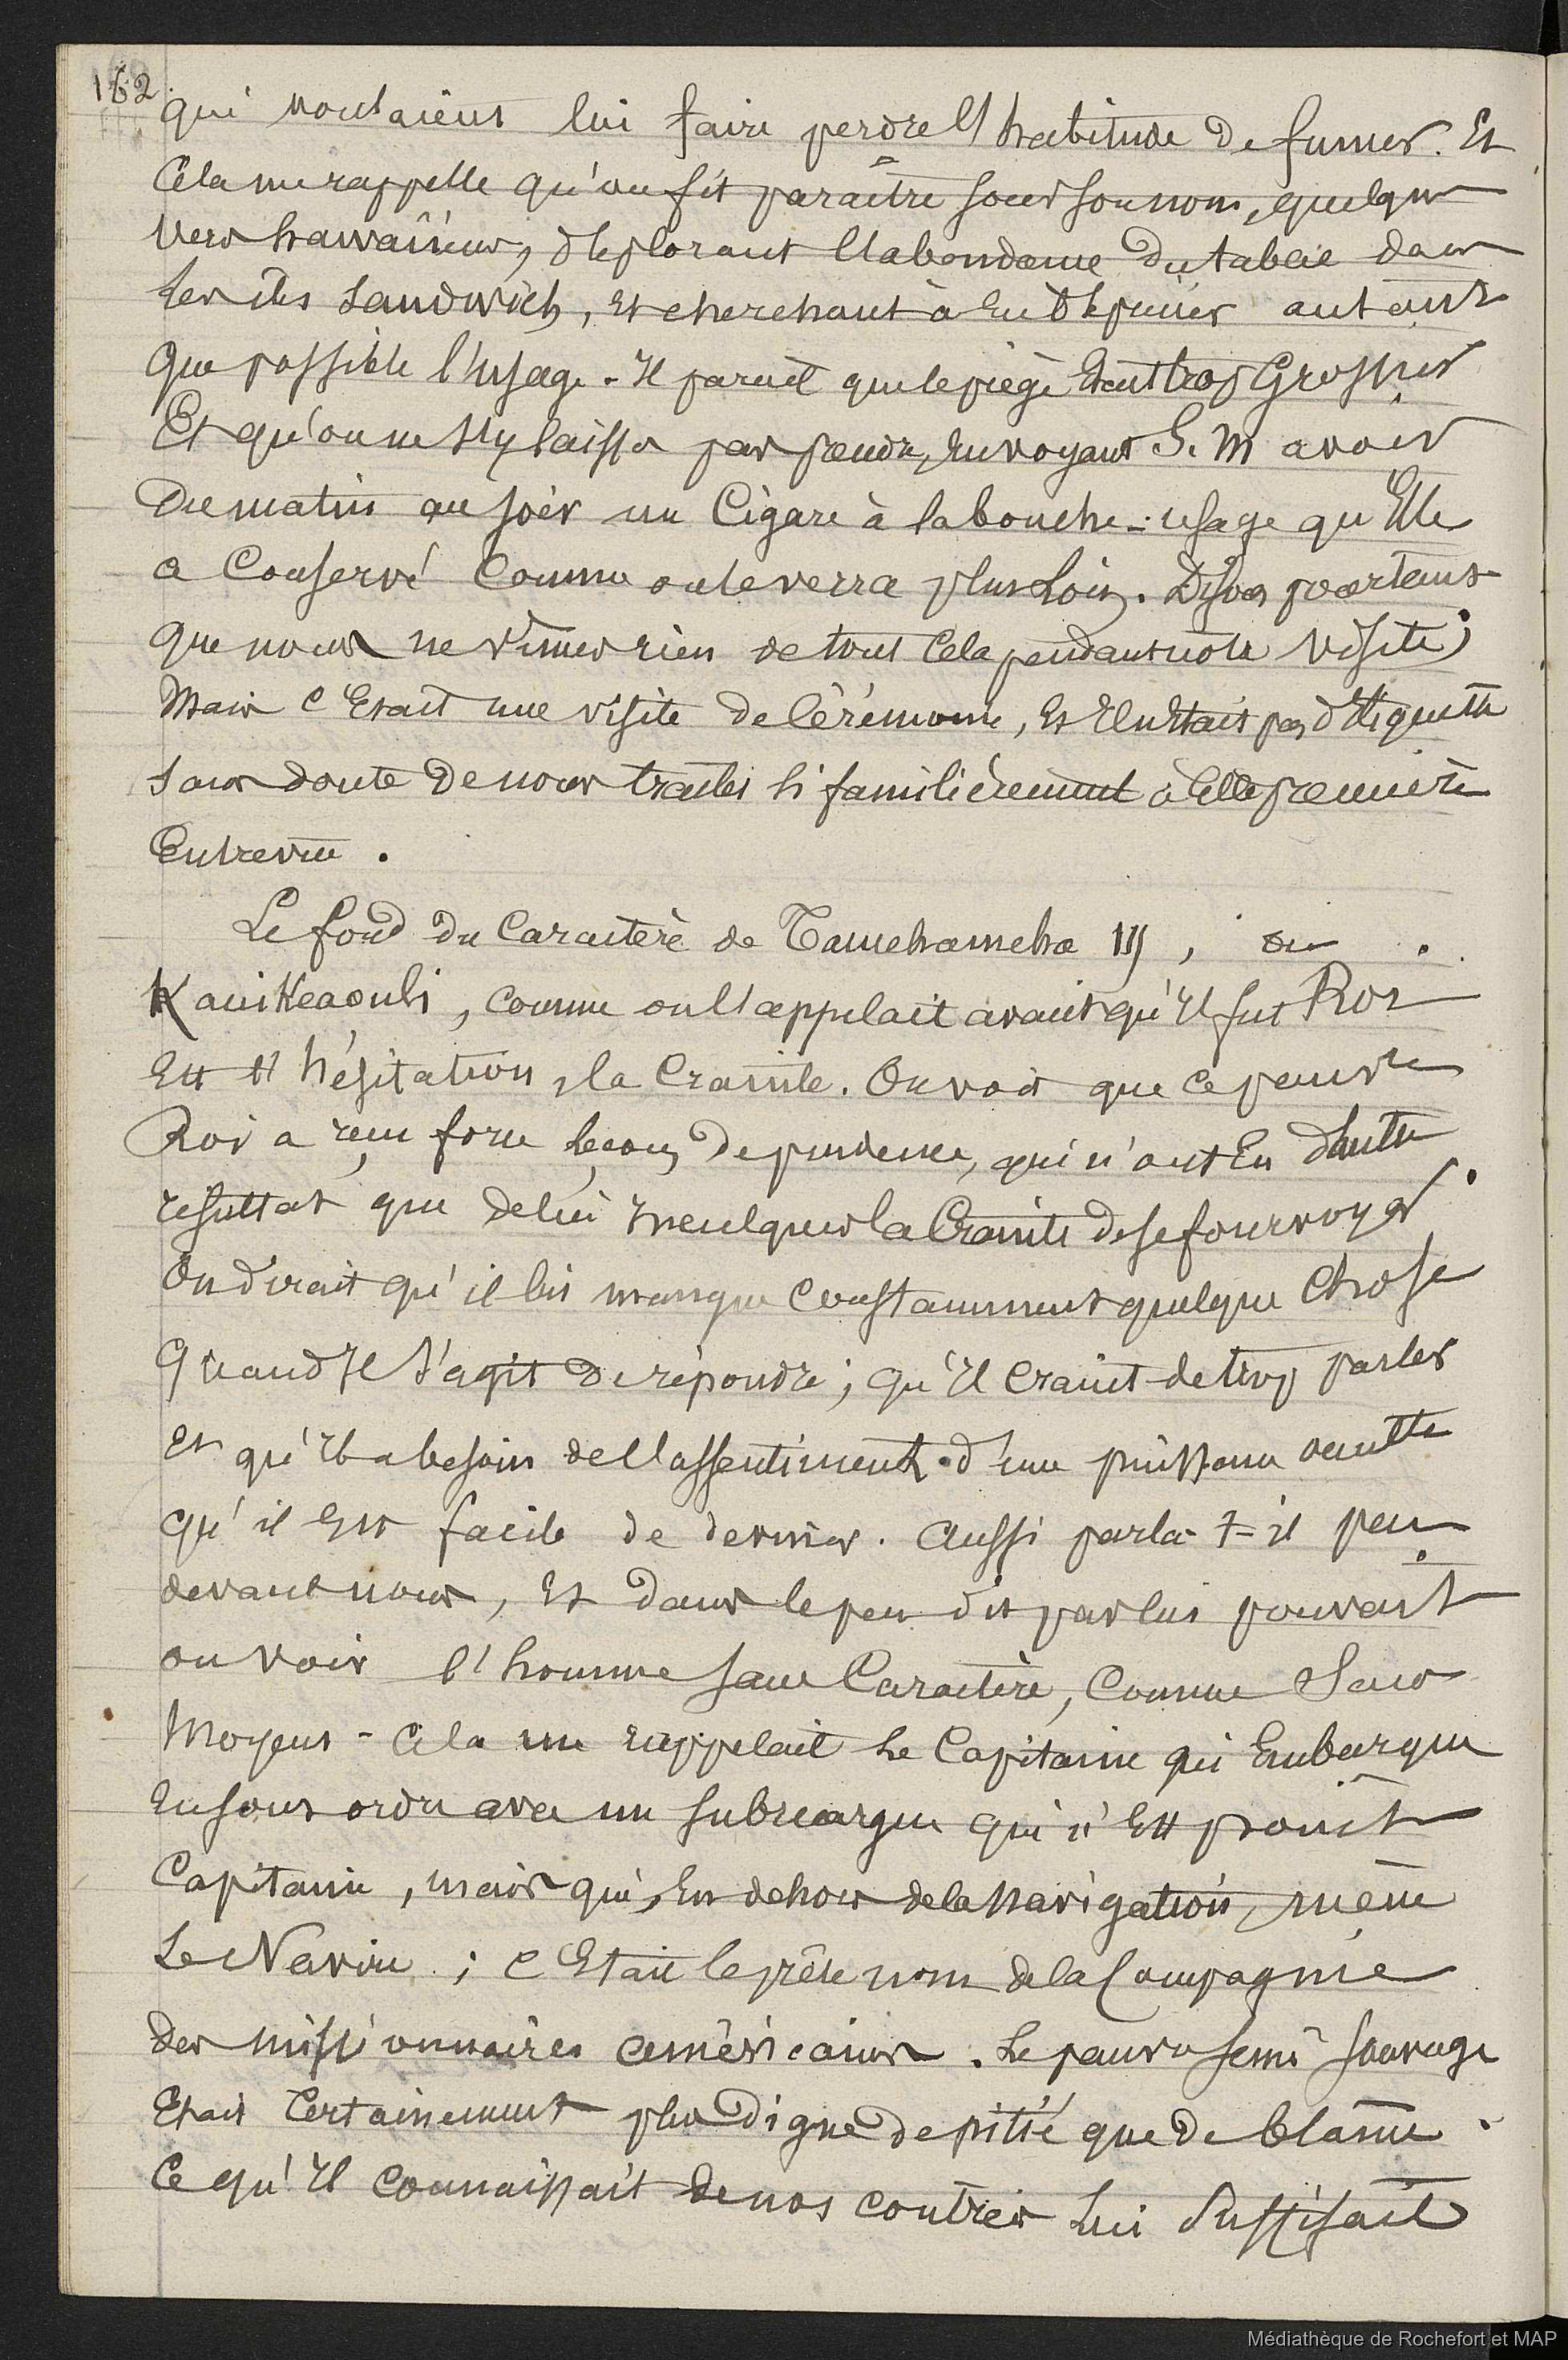 162.
qui voulaient lui faire perdre l'habitude de fumer. Et
Cela me rappelle qu'on fit paraître sous son nom, quelques
Vers hawaïiens, déplorant l'abondance du tabac dans
les îles Sandwich, et cherchant à en déprécier autant
que possible l'usage. Il parait que le piège était trop Grossier
Et qu'on ne s'y laissa pas prendre, en voyant S. M avoir
Du matin au soir un Cigare à la bouche - usage qu'Elle
a Conservé Comme on le verra plus loin. Disons pourtant
que nous ne vîmes rien de tout Cela pendant notre visite;
Mais C'Etait une visite de Cérémonie, Et Il n'était pas d'étiquette
sans doute De nous traiter si familièrement à Cette première
Entrevue.
Le fond du Caractère de Tamehameha III, ou
Kauikeaouli, comme on l'appelait avant qu'Il fut Roi
Est l'hésitation, la Crainte. On voit que ce pauvre
Roi a reçu force leçons de prudence, qui n'ont Eu d'autre
résultat que de lui Inculquer la Crainte de se fourvoyer.
On dirait qu'il lui manque Constamment quelque Chose
Quand Il s'agit De répondre; qu'Il Craint de trop parler
Et qu'Il a besoin de l'assentiment d'une puissance occulte
qu'il Est facile de deviner. Aussi parla-t-il peu
devant nous, Et Dans le peu dit par lui pouvait
on voir l'homme sans Caractère, Comme Sans
Moyens - Cela me rappelait le Capitaine qui Embarque
En sous ordre avec un subrécargue qui n'Est point
Capitaine, mais qui, En dehors de la Navigation, mène
Le Navire; C'Etait le prête nom de la Compagnie
des Missionnaires américains. Le pauvre semi sauvage
Etait Certainement plus Digne de pitié que De blâme.
Ce qu'Il Connaissait de nos contrées Lui Suffisait
Médiathèque de Rochefort et MAP